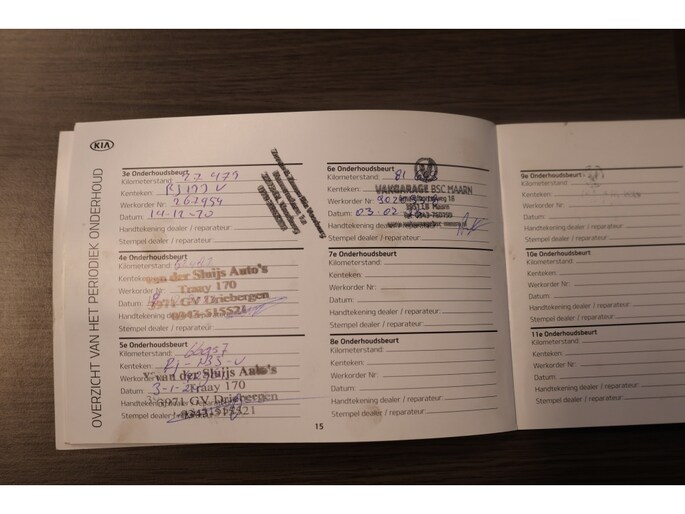 KIA
OVERZICHT VAN HET PERIODIEK ONDERHOUD
3e Onderhoudsbeurt
Kilometerstand:
Kenteken:
Werkorder Nr: 262954
Datum: 14-12-20
Handtekening dealer / reparateur:
Stempel dealer / reparateur:
4e Onderhoudsbeurt
Kilometerstand:
Kenteken:
Werkorder Nr:
Datum:
Handtekening dealer / reparateur:
Stempel dealer / reparateur:
van der Sluijs Auto's
Traay 170
3971 GV Driebergen
0343-515521
5e Onderhoudsbeurt
Kilometerstand:
Kenteken:
Werkorder Nr:
Datum: 3-1-
Handtekening dealer / reparateur:
Stempel dealer /
van der Sluijs Auto's
Traay 170
3971 GV Driebergen
0343-515521
6e Onderhoudsbeurt
Kilometerstand: 81
Kenteken:
Werkorder Nr:
Datum: 03-02
Handtekening dealer / reparateur:
Stempel dealer / reparateur:
VAKGARAGE BSC MAARN
7e Onderhoudsbeurt
Kilometerstand:
Kenteken:
Werkorder Nr:
Datum:
Handtekening dealer / reparateur:
Stempel dealer / reparateur:
8e Onderhoudsbeurt
Kilometerstand:
Kenteken:
Werkorder Nr:
Datum:
Handtekening dealer / reparateur:
Stempel dealer / reparateur:
15
9e Onderhoudsbeurt
Kilometerstand:
Kenteken:
Werkorder Nr:
Datum:
Handtekening dealer / reparateur:
Stempel dealer / reparateur:
10e Onderhoudsbeurt
Kilometerstand:
Kenteken:
Werkorder Nr:
Datum:
Handtekening dealer / reparateur:
Stempel dealer / reparateur:
11e Onderhoudsbeurt
Kilometerstand:
Kenteken:
Werkorder Nr:
Datum:
Handtekening dealer / reparateur:
Stempel dealer / reparateur: